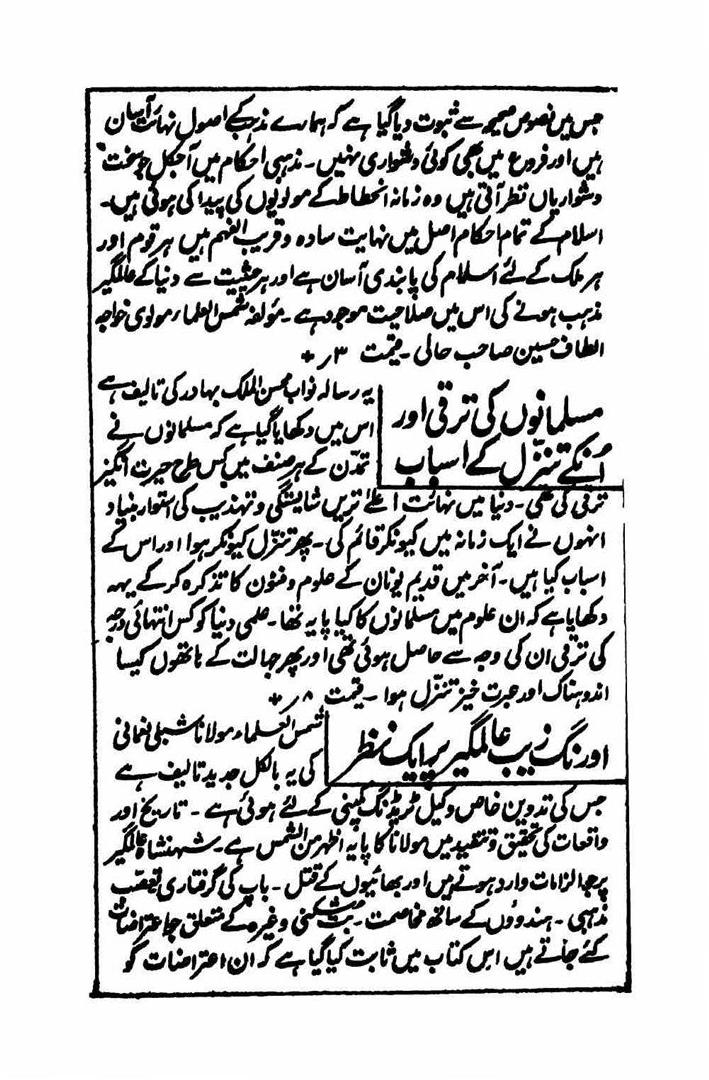 جس میں نصوص صحیحہ سے ثبوت دیا گیا ہے کہ ہمارے مذہب کے اصول نہائت آسان
ہیں اور فروع میں بھی کوئی دشواری نہیں۔ مذہبی احکام میں آجکل جو سخت
دشواریاں نظر آتی ہیں وہ زمانہ انحطاط کے مولویوں کی پیدا کی ہوئی ہیں۔
اسلام کے تمام احکام اصل میں نہایت سادہ و قریب الفہم ہیں ہر قوم اور
ہر ملک کے لئے اسلام کی پابندی آسان ہے اور ہر حیثیت سے دنیا کے عالمگیر
مذہب ہونے کی اس میں صلاحیت موجود ہے۔ مؤلفہ شمس العلماء مولوی خواجہ
الطاف حسین صاحب حالی۔ قیمت ۳ر
مسلمانوں کی ترقی اور
اُنکے تنزّل کے اسباب
یہ رسالہ نواب محسن الملک بہادر کی تالیف ہے
اس میں دکھایا گیا ہے کہ مسلمانوں نے
تمدّن کے ہر صنف میں کس طرح حیرت انگیز
ترقی کی تھی۔ دنیا میں نہائت اعلےٰ تریں شایستگی و تہذیب کی استوار بنیاد
انہوں نے ایک زمانہ میں کیونکر قائم کی۔ پھر تنزّل کیونکر ہوا اور اس کے
اسباب کیا ہیں۔ آخر میں قدیم یونان کے علوم و فنون کا تذکرہ کر کے یہہ
دکھایا ہے کہ ان علوم میں مسلمانوں کا کیا پایہ تھا۔ علمی دنیا کو کس انتہائی درجہ
کی ترقی ان کی وجہ سے حاصل ہوئی تھی اور پھر جہالت کے ہاتھوں کیسا
اندوہناک اور عبرت خیز تنزّل ہوا۔ قیمت ۸ر
اورنگ زیب عالمگیر پر ایک نظر
شمس العلماء مولانا شبلی نعمانی
کی یہ بالکل جدید تالیف ہے
جس کی تدوین خاص وکیل ٹریڈنگ کمپنی کے لئے ہوئی ہے۔ تاریخ اور
واقعات کی تحقیق و تنقید میں مولانا کا پایہ اظہر من الشمس ہے۔ شہنشاہ عالمگیر
پر جو الزامات وارد ہوتے ہیں اور بھائیوں کے قتل۔ باپ کی گرفتاری تعصب
مذہبی۔ ہندوؤں کے ساتھ مخاصمت۔ بت شکنی وغیرہ کے متعلق جو اعتراضات
کئے جاتے ہیں اس کتاب میں ثابت کیا گیا ہے کہ ان اعتراضات کو